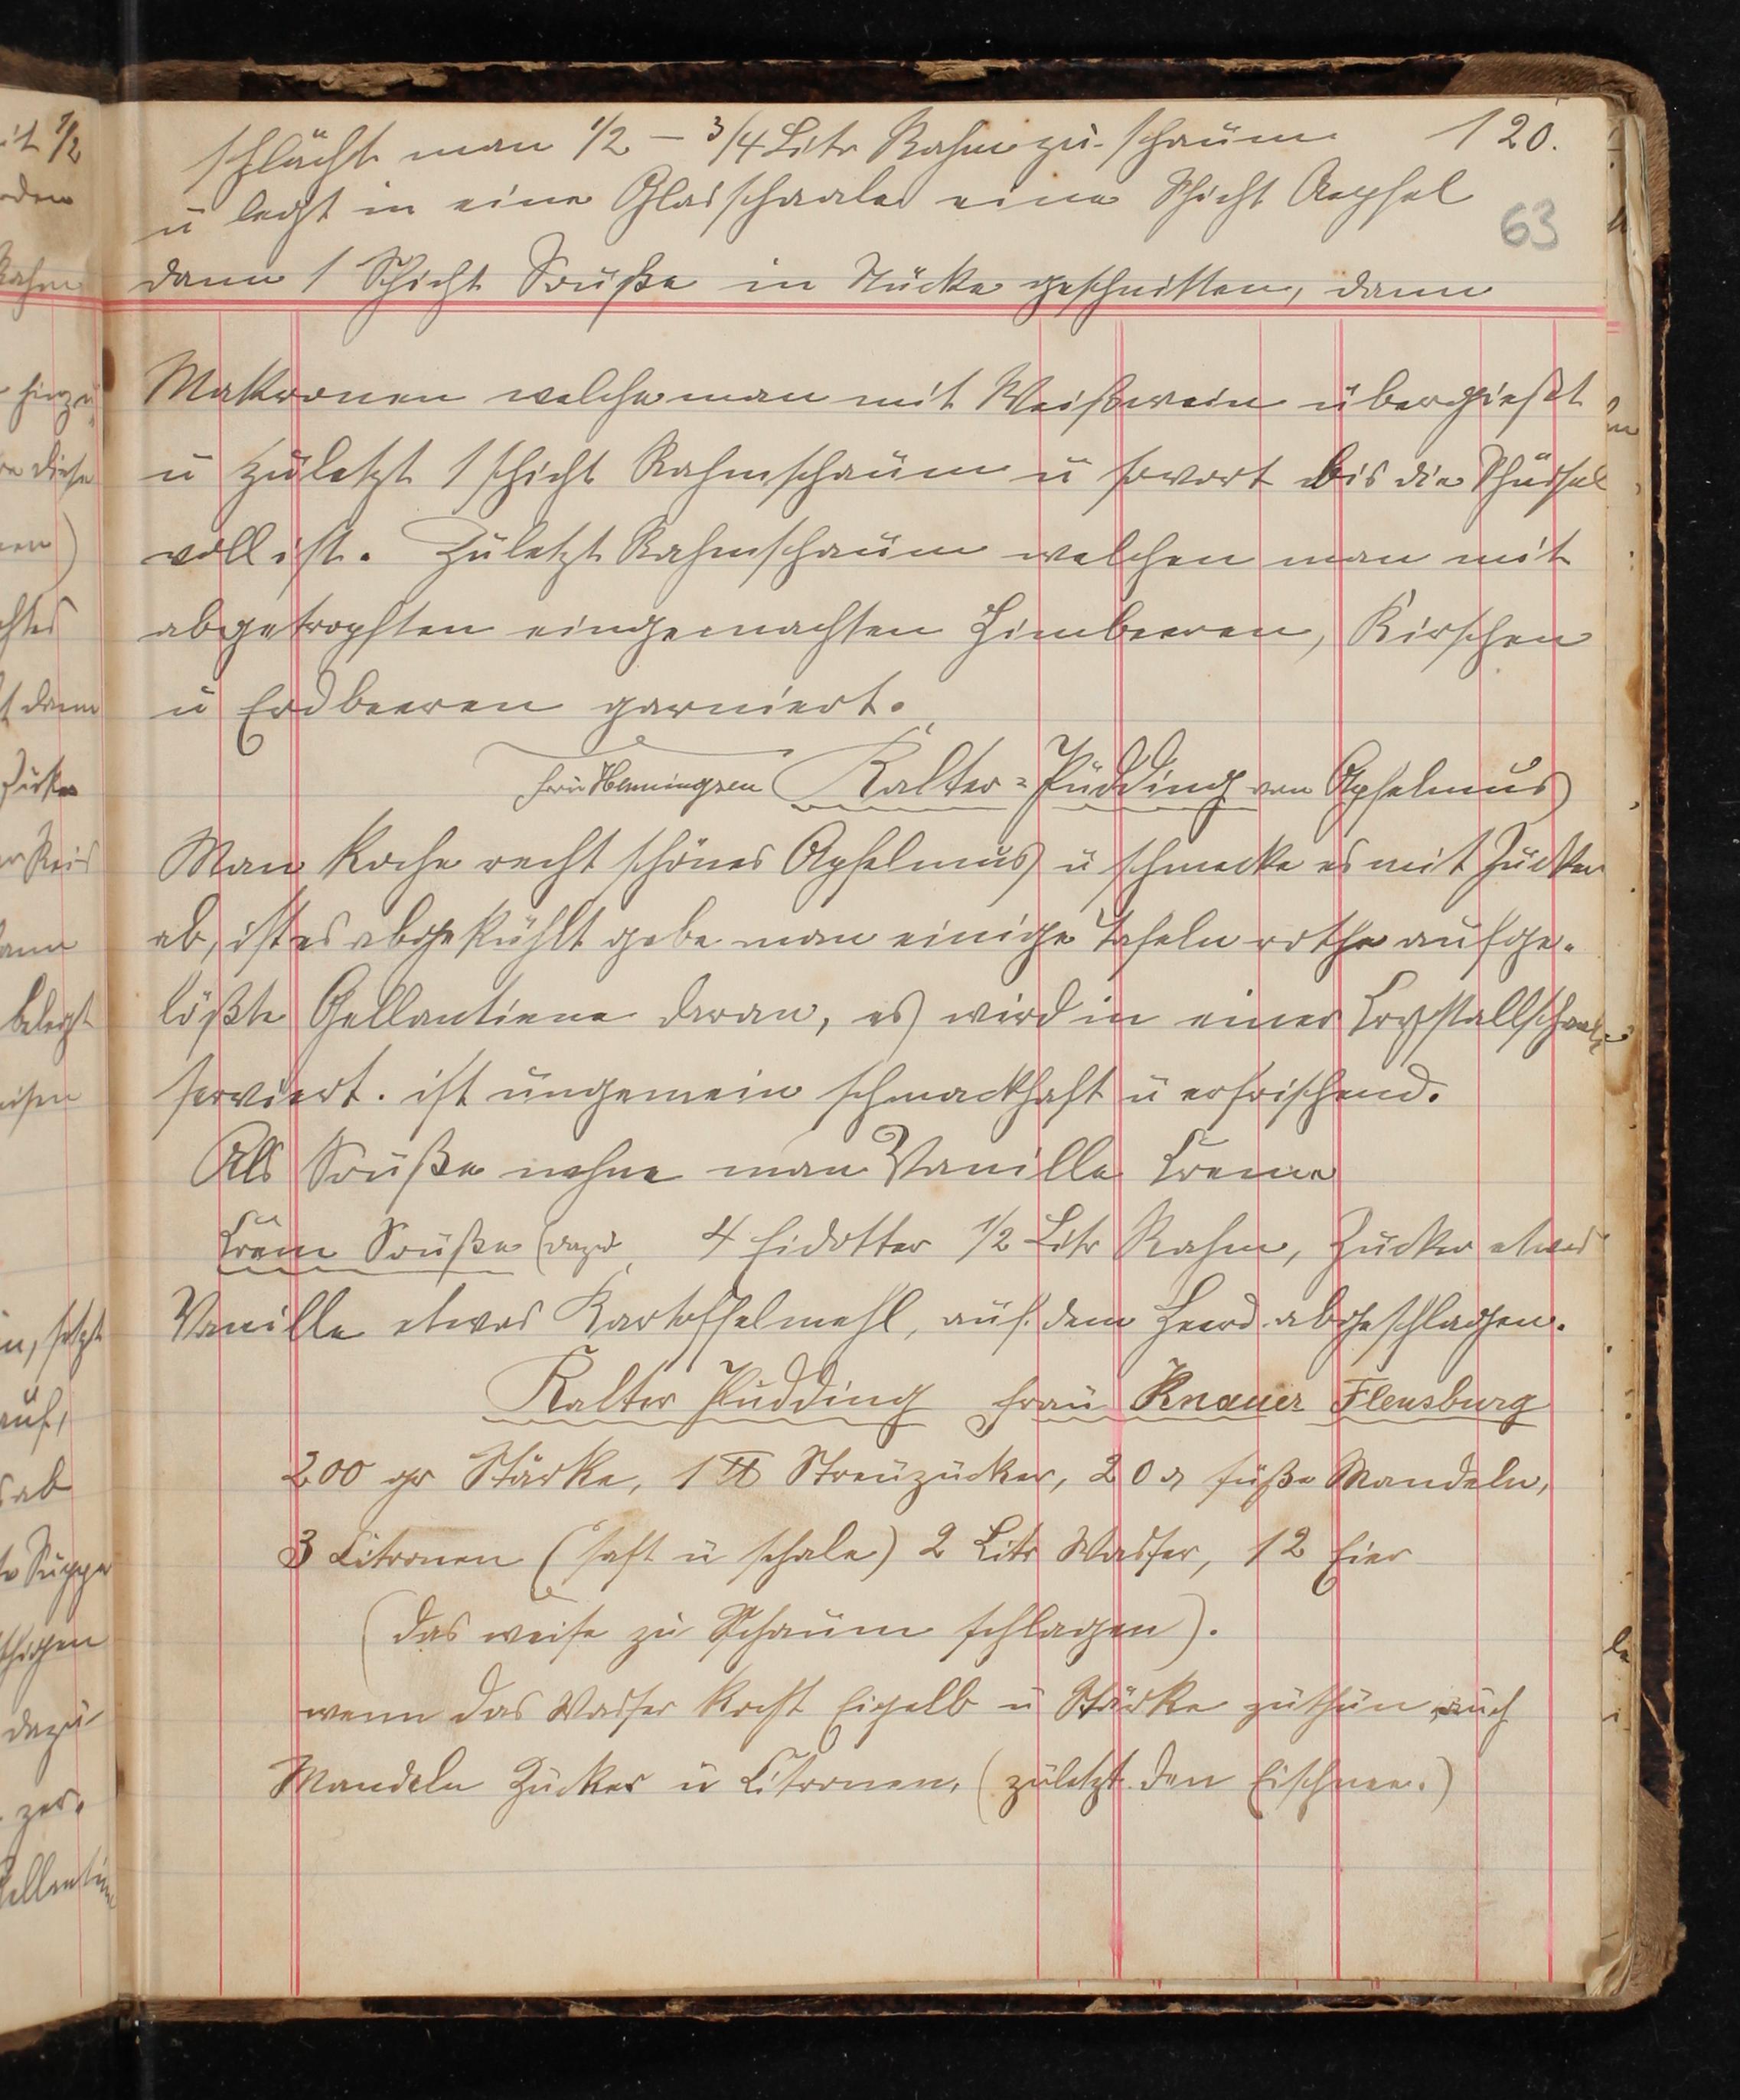 schlächt man 1/2 – 3/4 Litr Rahm zu schaum 120.
u legt in eine Glasschaale eine Schicht Aepfel
63
dann 1 Schicht Souße in Stücke geschnitten, dann
Makronen welche man mit Weißwein übergießt
u zuletzt 1 schicht Rahmschaum u sovort bis die Schüssel
voll ist. Zuletzt Rahmschaum welchen man mit
abgetropften eingemachten Himbeeren, Kirschen
u Erdbeeren garniert.
Frau Henningsen Kalter=Pudding von Apfelmus
Man koche recht schönes Apfelmus u schmecke es mit Zucker
ab, ist es abgekühlt gebe man einige Tafeln rothe aufge-
lößte Gellantiene daran, es wird in einer Crystallschaale
serviert. ist ungemein schmackhaft u erfrischend.
Als Souße nehme man Vanille Creme
Crem Souße (dazu 4 Eidotter 1/2 Litr Rahm, Zucker etwas
Vanille etwas Kartoffelmehl, auf dem Heerd abgeschlagen.
Kalter Pudding Frau Knauer Flensburg
200 gr Stärke, 1 ℔ Streuzucker, 20 g süße Mandeln,
3 Citronen (saft u schale) 2 Litr Wasser, 12 Eier
(das weise zu Schaum schlagen).
wenn das Wasser kocht Eigelb u Stärke zuthun auch
Mandeln Zucker u Citronen, (zuletzt den Eischnee.)